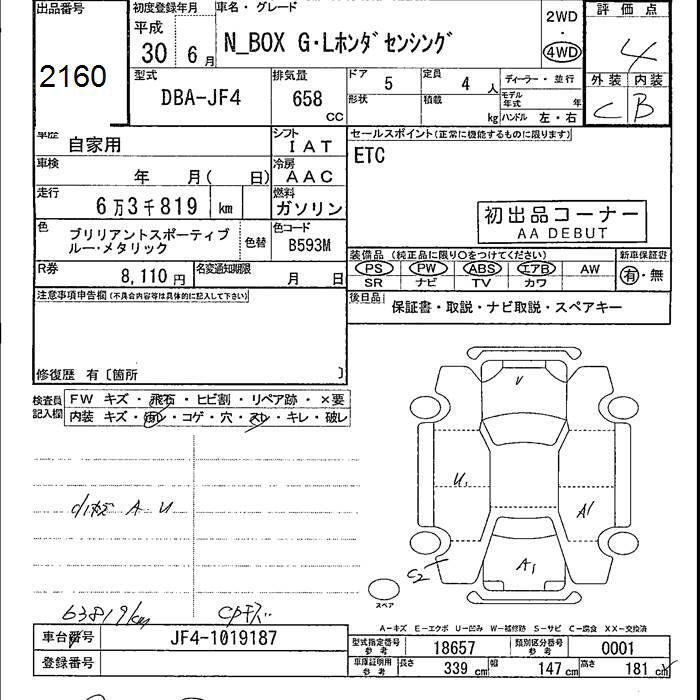 出品番号
2160
初度登録年月
平成
30 6月
車名・グレード
N_BOX G・Lホンダセンシング
2WD
・
4WD
評価点
4
外装 内装
C B
型式
DBA-JF4
排気量
658
CC
ドア 5
定員 4 人
形状
積載 kg
ディーラー・並行
モデル年式 年
ハンドル 左・右
車歴 自家用
シフト
IAT
セールスポイント(正常に機能するものに限ります)
ETC
車検 年 月( 日)
冷房
AAC
走行 6万3千819 km
燃料
ガソリン
初出品コーナー
AA DEBUT
色 ブリリアントスポーティブ
ルー・メタリック
色替
色コード
B593M
装備品(純正品に限り○をつけてください)
新車保証書
PS PW ABS エアB AW
有・無
SR ナビ TV カワ
R券 8,110円
名変通知期限 月 日
後日品 保証書・取説・ナビ取説・スペアキー
注意事項申告欄(不具合内容等は具体的に記入して下さい)
修復歴 有〔箇所 〕
検査員
記入欄
FW キズ・飛石・ヒビ割・リペア跡・×要
内装 キズ・汚れ・コゲ・穴・スレ・キレ・破レ
V
U1
A1
A1
C2
A U
スペア
63819km
A-キズ E-エクボ U-凹み W-補修跡 S-サビ C-腐食 XX-交換済
車台番号 JF4-1019187
登録番号
型式指定番号
参考
18657
類別区分番号
参考
0001
車庫証明用
参考
長さ 339 cm
幅 147 cm
高さ 181 cm